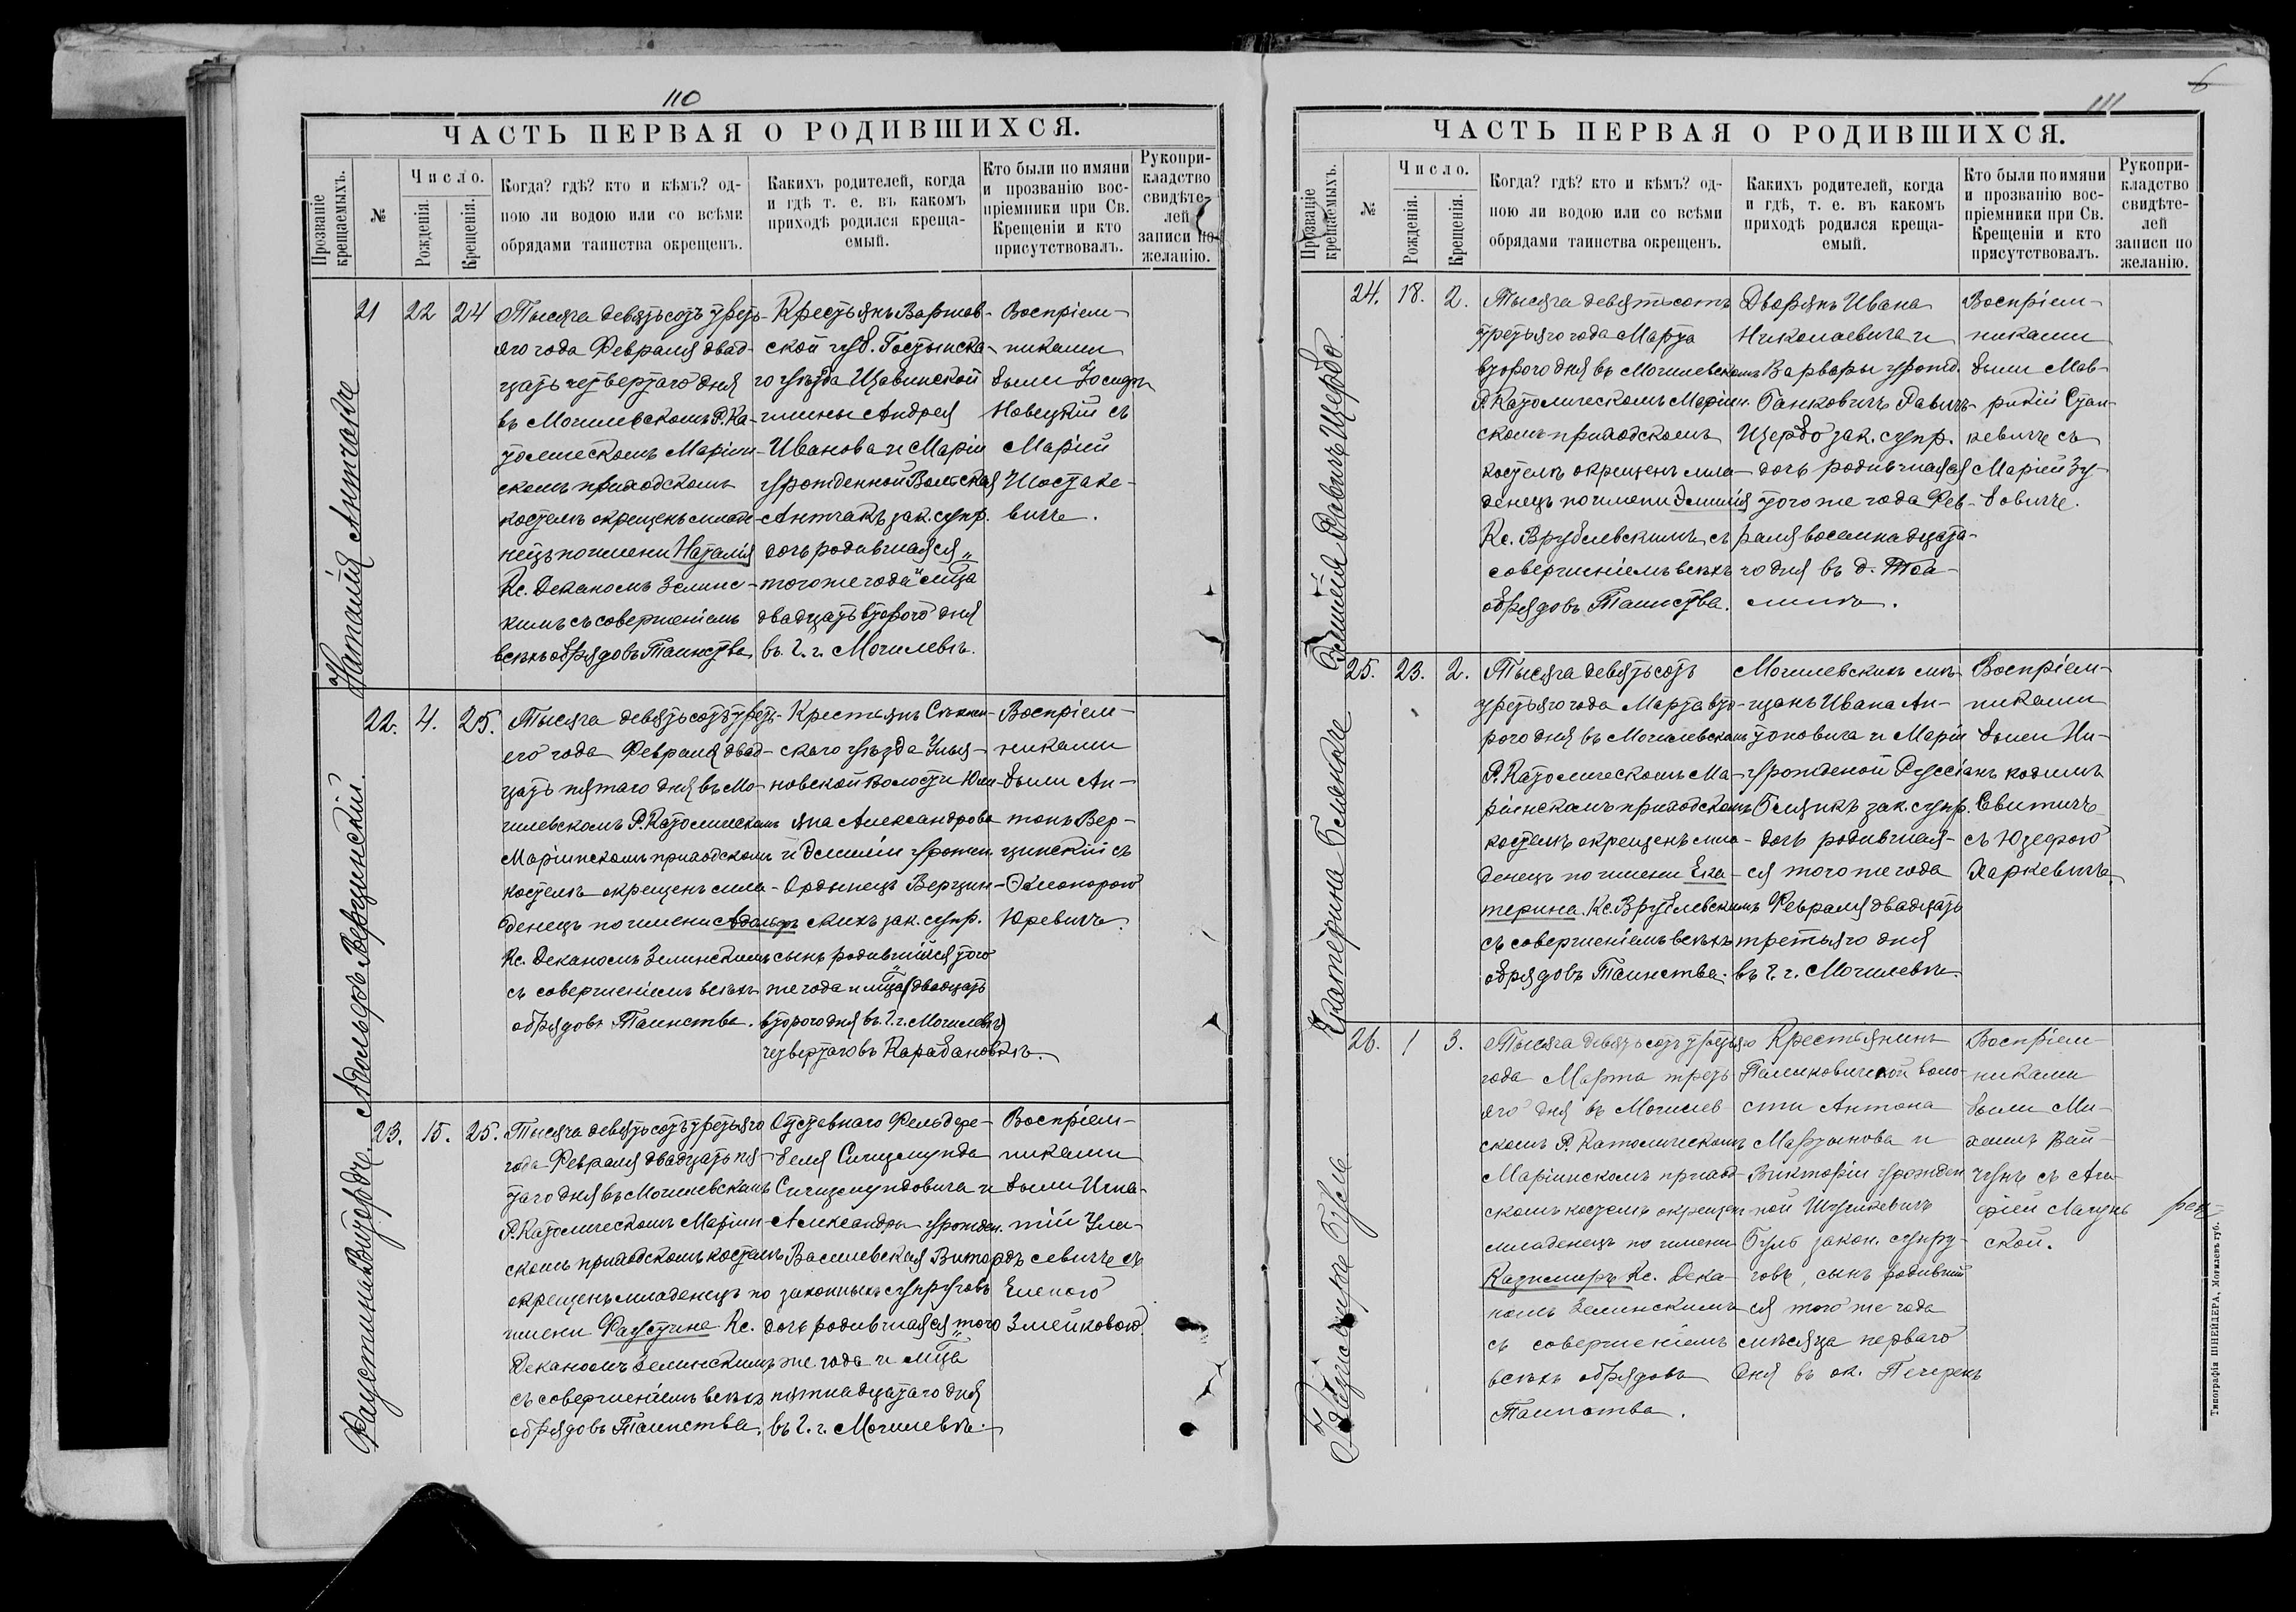 110
ЧАСТЬ ПЕРВАЯ О РОДИВШИХСЯ.
Прозваніе крещаемыхъ.
№
Число.
Рожденія.
Крещенія.
Когда? гдѣ? кто и кѣмъ? од-
ною ли водою или со всѣми
обрядами таинства окрещенъ.
Какихъ родителей, когда
и гдѣ т. е. въ какомъ
приходѣ родился креща-
емый.
Кто были по имяни
и прозванію вос-
пріемники при Св.
Крещеніи и кто
присутствовалъ.
Рукопри-
кладство
свидѣте-
лей
записи по
желанію.
Наталія Антчакъ
21 22 24
Тысяча девятьсотъ треть-
яго года Февраля двад-
цать четвертаго дня
въ Могилевскомъ Р. Ка-
толическомъ Маріин-
скомъ приходскомъ
костелѣ окрещенъ младе-
нецъ по имени Наталія
Кс. Деканомъ Зелинс-
кимъ съ совершеніемъ
всѣхъ обрядовъ Таинства.
Крестьянъ Варшав-
ской губ. Гостынска-
го уѣзда Щавинской
гмины Андрея
Иванова и Маріи
урожденной Вольская
Антчакъ зак. супр.
дочь родившаяся
того же года и мца
двадцать второго дня
въ г. г. Могилевѣ.
Воспріем-
никами
были Іосифъ
Новецкій съ
Маріей
Шостаке-
вичъ.
Адольфъ Верцинскій.
22. 4. 25.
Тысяча девятьсотъ треть-
его года Февраля двад-
цать пятаго дня въ Мо-
гилевскомъ Р. Католическомъ
Маріинскомъ приходскомъ
костелѣ окрещенъ мла-
денецъ по имени Адольфъ
Кс. Деканомъ Зелинскимъ
съ совершеніемъ всѣхъ
обрядовъ Таинства.
Крестьянъ Сѣннен-
скаго уѣзда Ульян-
новской волости Юли-
яна Александрова
и Эмиліи урожен.
Ордынецъ Верцин-
скихъ зак. супр.
сынъ родившійся того
же года и мца двадцать
второго дня въ г. г. Могилевѣ
четвертаго въ Карабановкѣ.
Воспріем-
никами
были Ан-
тонъ Вер-
цинскій съ
Элеонорою
Юревичъ.
Фаустина Витордъ.
23. 15. 25.
Тысяча девятьсотъ третьяго
года Февраля двадцать пя-
таго дня въ Могилевскомъ
Р. Католическомъ Маріин-
скомъ приходскомъ костелѣ
окрещенъ младенецъ по
имени Фаустина Кс.
Деканомъ Зелинскимъ
съ совершеніемъ всѣхъ
обрядовъ Таинства.
Отставнаго Фельдфе-
беля Сигизмунда
Сигизмундовича и
Александры урожден.
Василевская Витордъ
законныхъ супруговъ
дочь родившаяся того
же года и мца
пятнадцатаго дня
въ г. г. Могилевѣ.
Воспріем-
никами
были Игна-
тій Ули-
севичъ съ
Еленою
Змейковою.
6
111
ЧАСТЬ ПЕРВАЯ О РОДИВШИХСЯ.
Прозваніе крещаемыхъ.
№
Число.
Рожденія.
Крещенія.
Когда? гдѣ? кто и кѣмъ? од-
ною ли водою или со всѣми
обрядами таинства окрещенъ.
Какихъ родителей, когда
и гдѣ, т. е. въ какомъ
приходѣ родился креща-
емый.
Кто были по имяни
и прозванію вос-
пріемники при Св.
Крещеніи и кто
присутствовалъ.
Рукопри-
кладство
свидѣте-
лей
записи по
желанію.
Эмилія Равичъ Щербо.
24. 18. 2.
Тысяча девятьсотъ
третьяго года Марта
второго дня въ Могилевскомъ
Р. Католическомъ Маріин.
скомъ приходскомъ
костелѣ окрещенъ мла-
денецъ по имени Эмилія
Кс. Врублевскимъ съ
совершеніемъ всѣхъ
обрядовъ Таинства.
Дворянъ Ивана
Николаевича и
Варвары урожд.
Ганковичъ Равичъ-
Щербо зак. супр.
дочь родившаяся
того же года Фев-
раля восемнадцата-
го дня въ д.
Воспріем-
никами
были Мав-
рикій Стан-
кевичъ съ
Маріей Зу-
бовичъ.
Екатерина
25. 23. 2.
Тысяча девятьсотъ
третьяго года Марта вто-
рого дня въ Могилевскомъ
Р. Католическомъ Ма-
ріинскомъ приходскомъ
костелѣ окрещенъ мла-
денецъ по имени Ека-
терина. Кс. Врублевскимъ
съ совершеніемъ всѣхъ
обрядовъ Таинства.
Могилевскихъ мѣ-
щанъ Ивана Ан-
тоновича и Маріи
урожденой Руссіанъ
зак. супр.
дочь родившая-
ся того же года
Февраля двадцать
третьяго дня
въ г. г. Могилевѣ.
Воспріем-
никами
были Ни-
кодимъ
Евитичъ
съ Юзефою
Харкевичъ.
26. 1 3.
Тысяча девятьсотъ третьяго
года Марта треть-
яго дня въ Могилев
скомъ Р. Католическомъ
Маріинскомъ приход-
скомъ костелѣ окрещен
младенецъ по имени
Казимиръ Кс. Дека-
номъ Зелинскимъ
съ совершеніемъ
всѣхъ обрядовъ
Таинства.
Крестьянинъ
волo-
сти Антона
Мартынова и
Викторіи урожден
ной Шушкевичъ
Буль закон. супру-
говъ, сынъ родивший
ся того же года
мѣсяца перваго
дня въ ок. Печерскъ
Воспріем-
никами
были Ми-
хаилъ Вай-
чунъ съ Ага-
фіей
ской.
Типографія ШНЕЙДЕРА, Могилевъ губ.